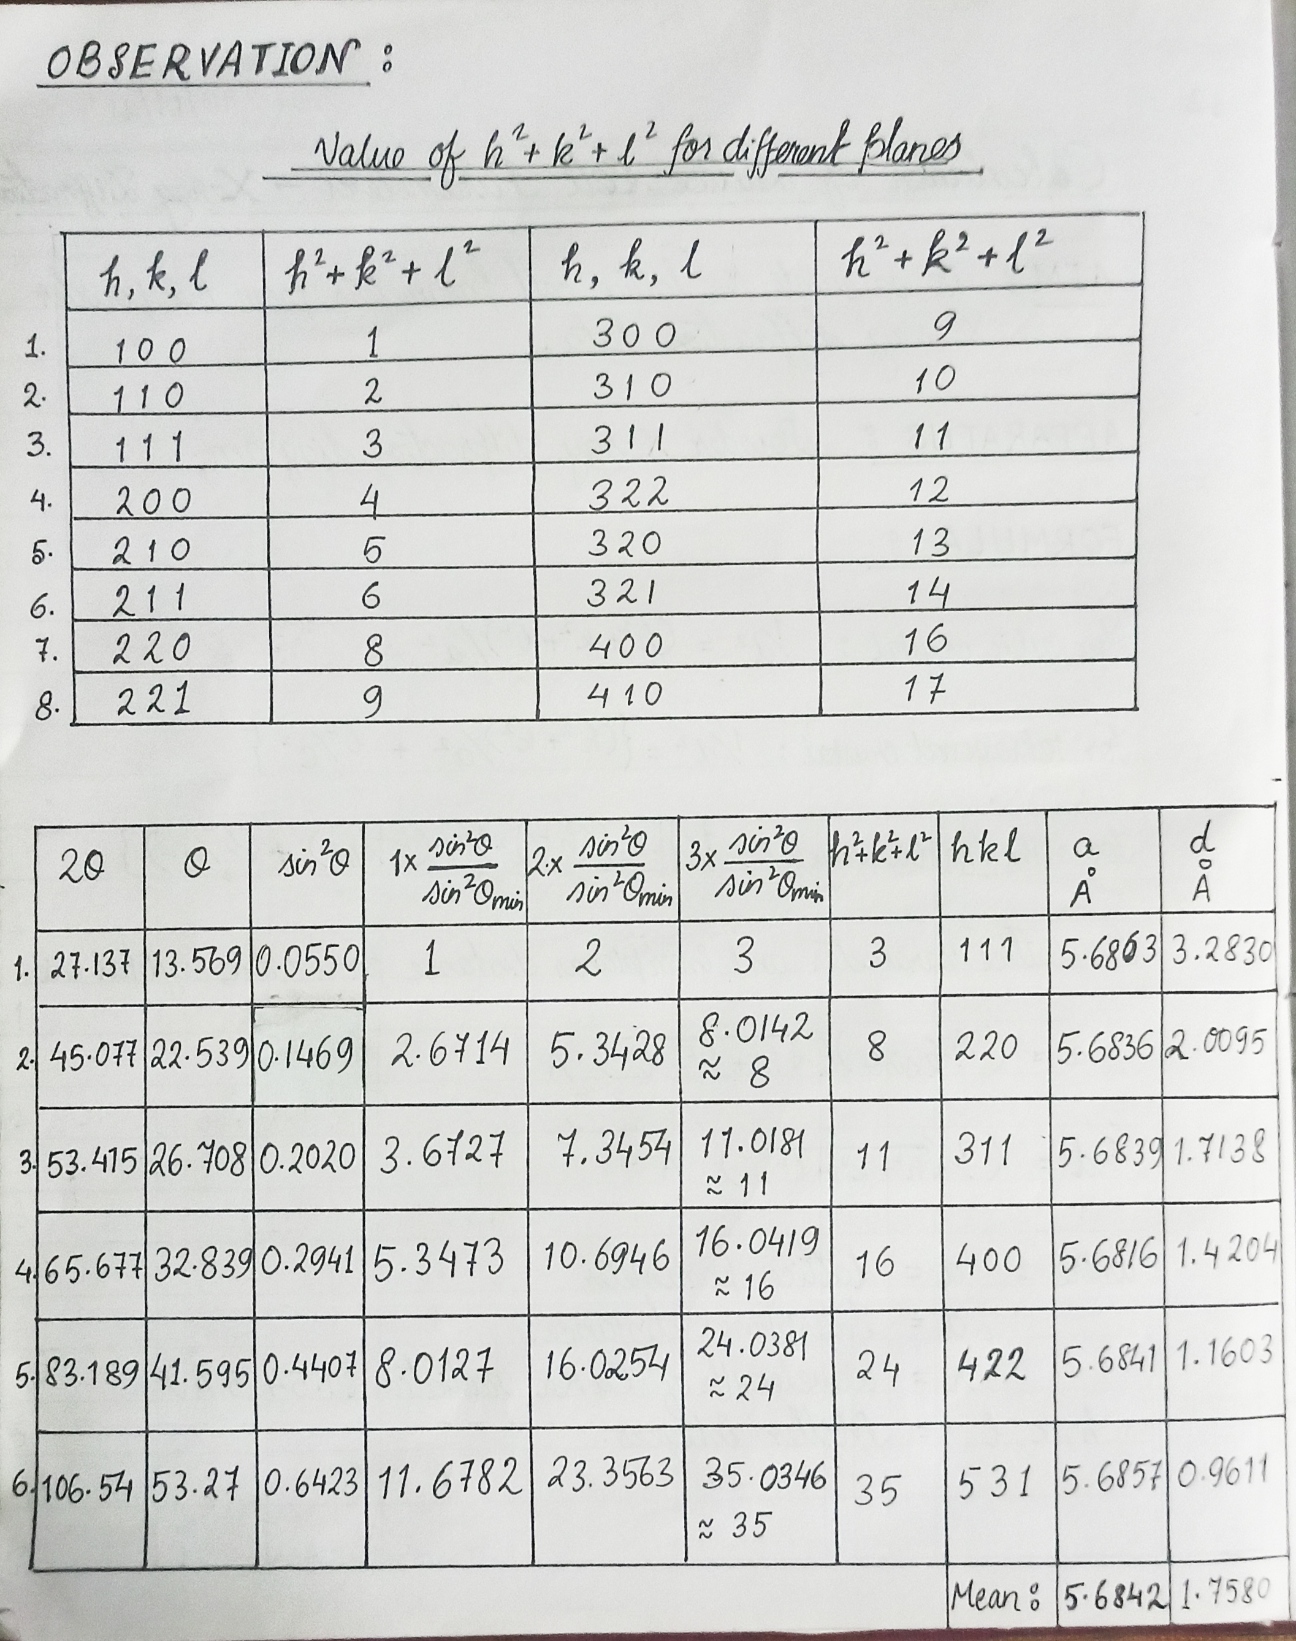 OBSERVATION :
Value of h²+k²+l² for different planes
h, k, l h²+k²+l² h, k, l h²+k²+l²
1. 100 1 300 9
2. 110 2 310 10
3. 111 3 311 11
4. 200 4 322 12
5. 210 5 320 13
6. 211 6 321 14
7. 220 8 400 16
8. 221 9 410 17
2θ θ sin²θ 1× sin²θ/sin²θmin 2× sin²θ/sin²θmin 3× sin²θ/sin²θmin h²+k²+l² hkl a Å d Å
1. 27.137 13.569 0.0550 1 2 3 3 111 5.6863 3.2830
2. 45.077 22.539 0.1469 2.6714 5.3428 8.0142 ≈ 8 8 220 5.6836 2.0095
3. 53.415 26.708 0.2020 3.6727 7.3454 11.0181 ≈ 11 11 311 5.6839 1.7138
4. 65.677 32.839 0.2941 5.3473 10.6946 16.0419 ≈ 16 16 400 5.6816 1.4204
5. 83.189 41.595 0.4407 8.0127 16.0254 24.0381 ≈ 24 24 422 5.6841 1.1603
6. 106.54 53.27 0.6423 11.6782 23.3563 35.0346 ≈ 35 35 531 5.6857 0.9611
Mean : 5.6842 1.7580